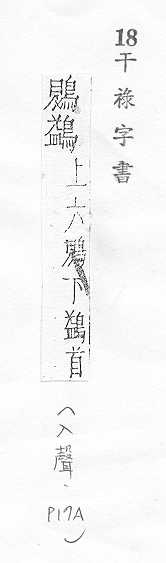 18干祿字書
鶂鷁上六鶂下鷁首(入聲. P17A)